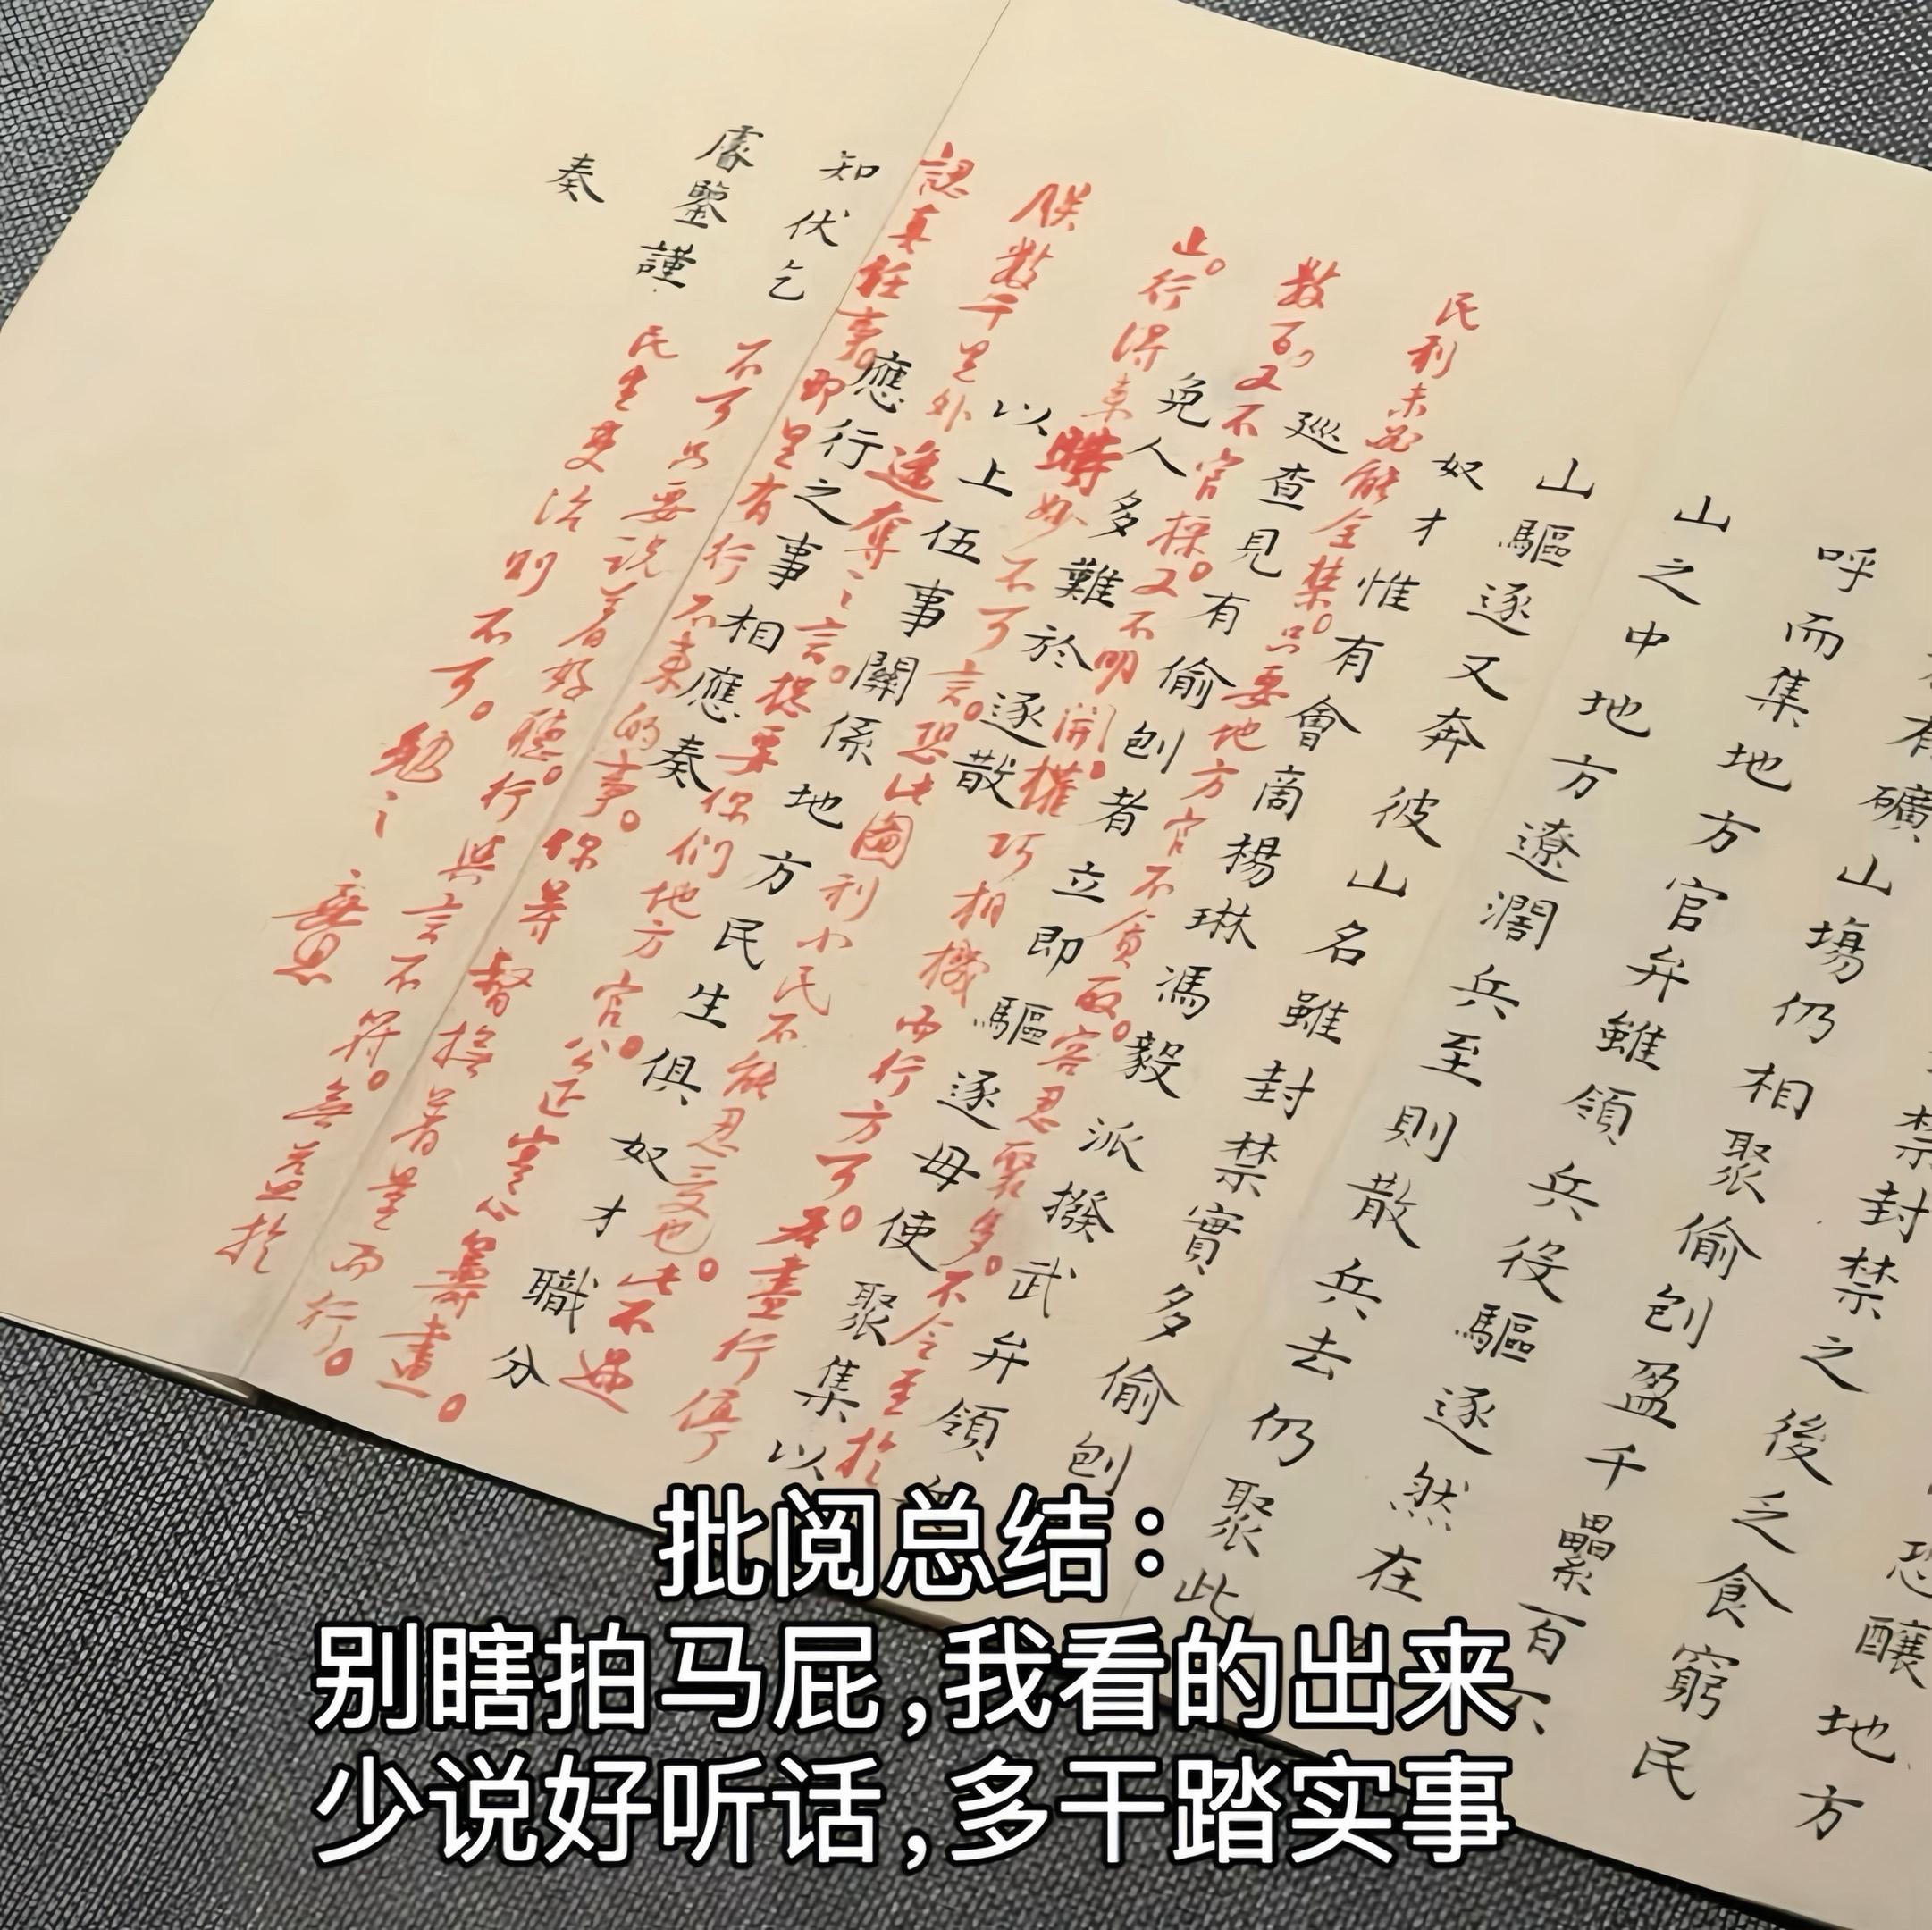 恐釀地方
禁封禁之後乏食窮民
有礦山塲仍相聚偷刨盈千纍百
呼而集地方官弁雖領兵役驅逐然在
山之中地方遼濶兵至則散兵去仍聚此
山驅逐又奔彼山名雖封禁實多偷刨
奴才惟有會啇楊琳馮毅派撥武弁領
巡查見有偷刨者立即驅逐毋使聚集以
免人多難於逐散
以上伍事關係地方民生俱奴才職分
應行之事相應奏
知伏乞
睿鑒謹
奏
民利未必能全禁。只要地方官不貪取。容忍聚多。不令至於
數百。又不官採。又不明開。權巧相機而行方可。若盡行停
止。行得來時妙不可言。恐此圖利小民不能忍受也。此不過
朕數千里外遙奪之言。總要你們地方官。公正實心籌畫。
認真任事。即里有行不來的事。你等督撫着量而行。
不可只要說着好聽。行與言不符。無益於
民生吏治則不可。勉之
批阅总结：
别瞎拍马屁,我看的出来
少说好听话,多干踏实事